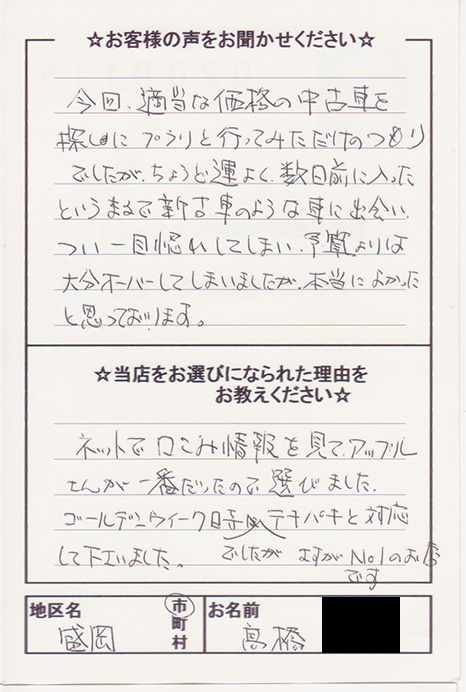 ☆お客様の声をお聞かせください☆
今回、適当な価格の中古車を
探しにブラリと行ってみただけのつもり
でしたが、ちょうど運よく、数日前に入った
というまるで新古車のような車に出会い、
つい一目惚れしてしまい、予算よりは
大分オーバーしてしまいましたが、本当によかった
と思っております。
☆当店をお選びになられた理由を
お教えください☆
ネットで口こみ情報を見て、アップル
さんが一番だったので選びました。
ゴールデンウィーク時 テキパキと対応
して下さいました。 でしたが さすがNo1のお店
です
地区名
盛岡
市
町
村
お名前
高橋